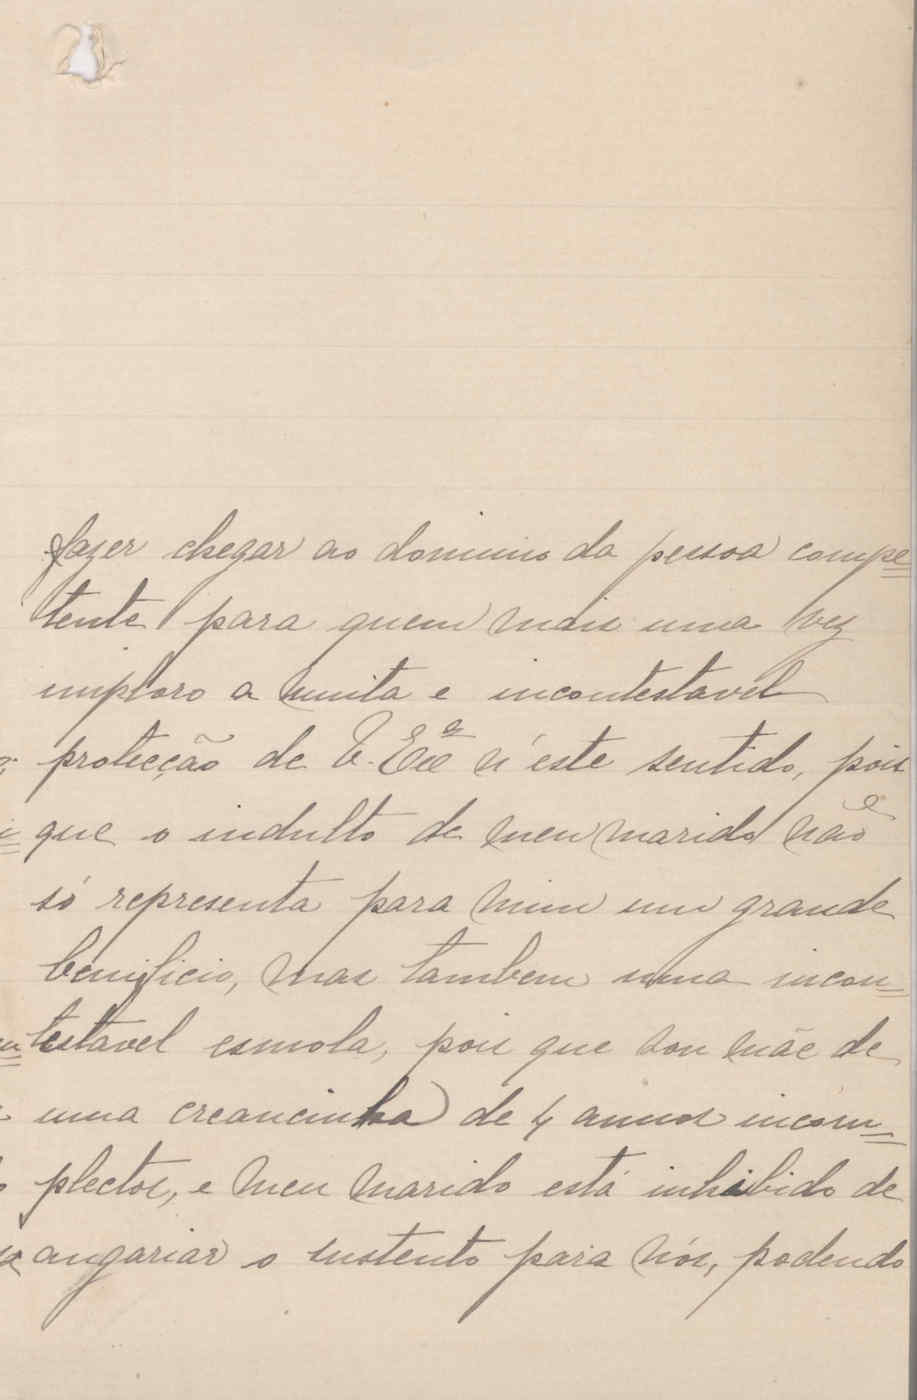 fazer chegar ao dominio da pessoa compe=
tente para quem mais uma vez
imploro a muita e incontestavel
protecção de V. Exª n'este sentido, pois
que o indulto de meu marido não
só representa para mim um grande
benificio, mas tambem uma incon=
testavel esmola, pois que sou mãe de
uma creancinha de 4 annos incom=
plectos, e meu marido está inhibido de
angariar o sustento para nós, podendo